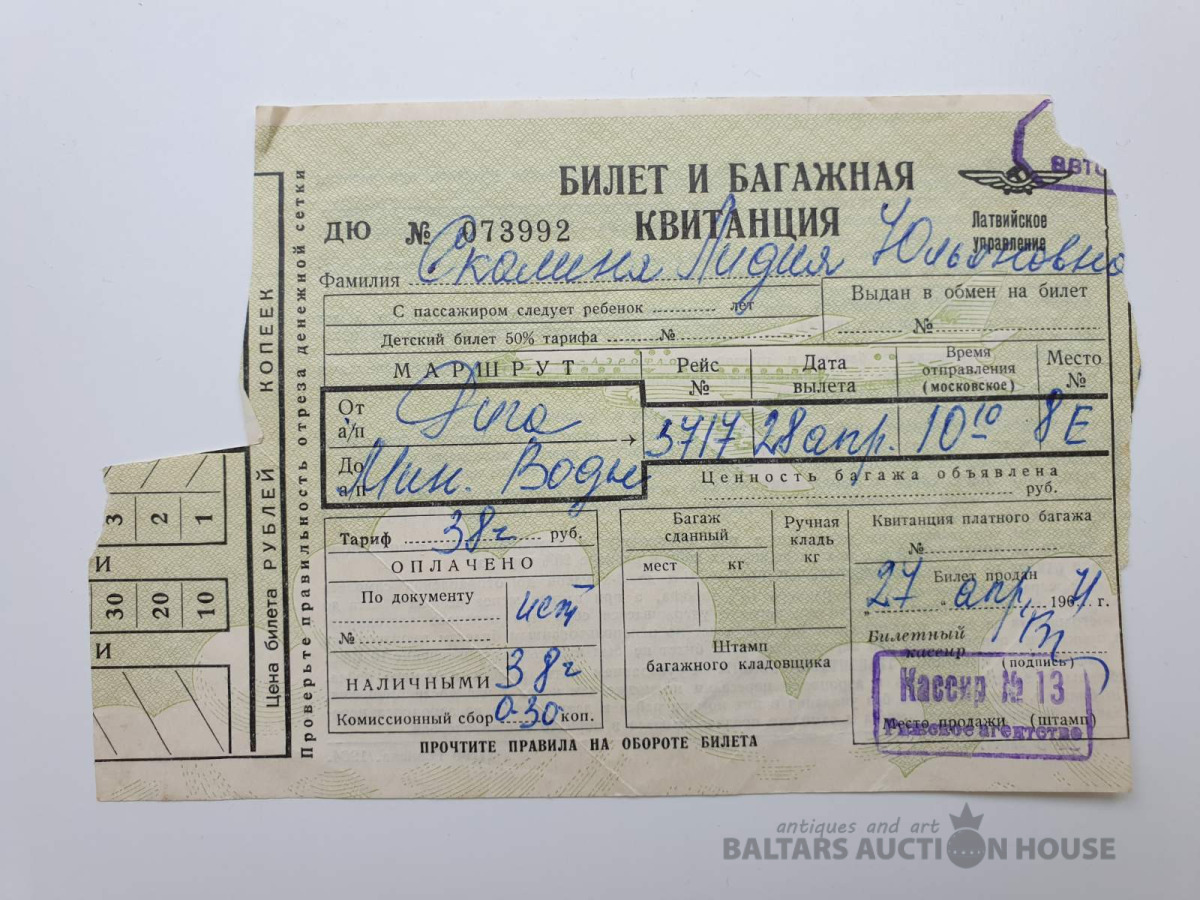 БИЛЕТ И БАГАЖНАЯ
КВИТАНЦИЯ
ДЮ № 073992
Латвийское
управление
Фамилия Скалиня Лидия Юльяновна
С пассажиром следует ребенок лет
Детский билет 50% тарифа №
Выдан в обмен на билет
№
АЭРОФЛО
МАРШРУТ
Рейс
№
Дата
вылета
Время
отправления
(московское)
Место
№
От
а/п
Рига
До
а/п
Мин. Воды
3717 28 апр. 10 10 8Е
Ценность багажа объявлена
руб.
Тариф 38 г руб.
ОПЛАЧЕНО
По документу
№
НАЛИЧНЫМИ 38 г
Комиссионный сбор 0-30 коп.
Багаж
сданный
мест кг
Ручная
кладь
кг
Штамп
багажного кладовщика
Квитанция платного багажа
№
Билет продан
„27“ апр. 1971 г.
Билетный
кассир
(подпись)
Кассир № 13
Место продажи (штамп)
Рижское агентство
ПРОЧТИТЕ ПРАВИЛА НА ОБОРОТЕ БИЛЕТА
Проверьте правильность отреза денежной сетки
Цена билета РУБЛЕЙ КОПЕЕК
3 2 1
И
30 20 10
И
antiques and art
BALTARS AUCTION HOUSE